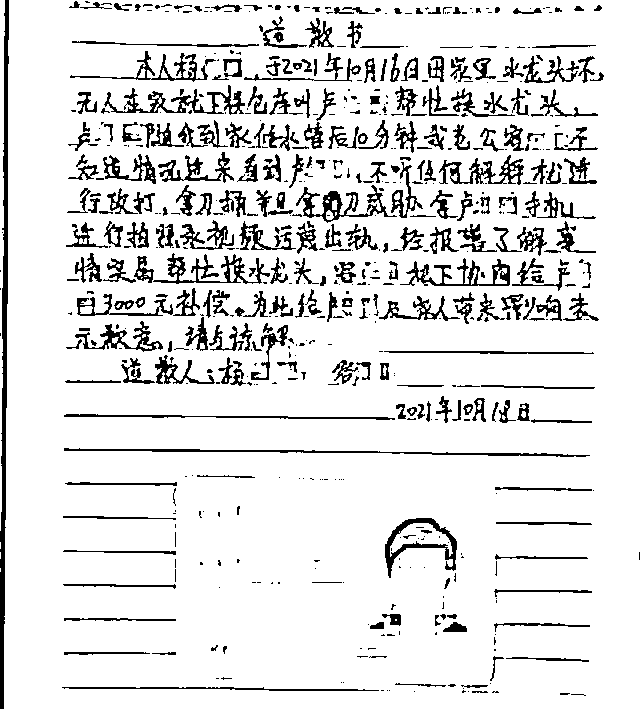 道歉书
本人杨 ，于2021年10月16日因家里水龙头坏，
无人在家就下楼包库叫卢 帮忙换水龙头，
卢 随我到家修水管后10分钟我老公容 不
知道情况进来看到卢 ，不听任何解释 进
行殴打，拿刀捅并且拿 刀威胁拿卢 手机
进行拍照录视频污蔑出轨，经报警了解案
情实属帮忙换水龙头，容 私下协商给卢
3000元补偿。为此给卢 及家人带来影响表
示歉意，请与谅解
道歉人：杨 容
2021年10月18日